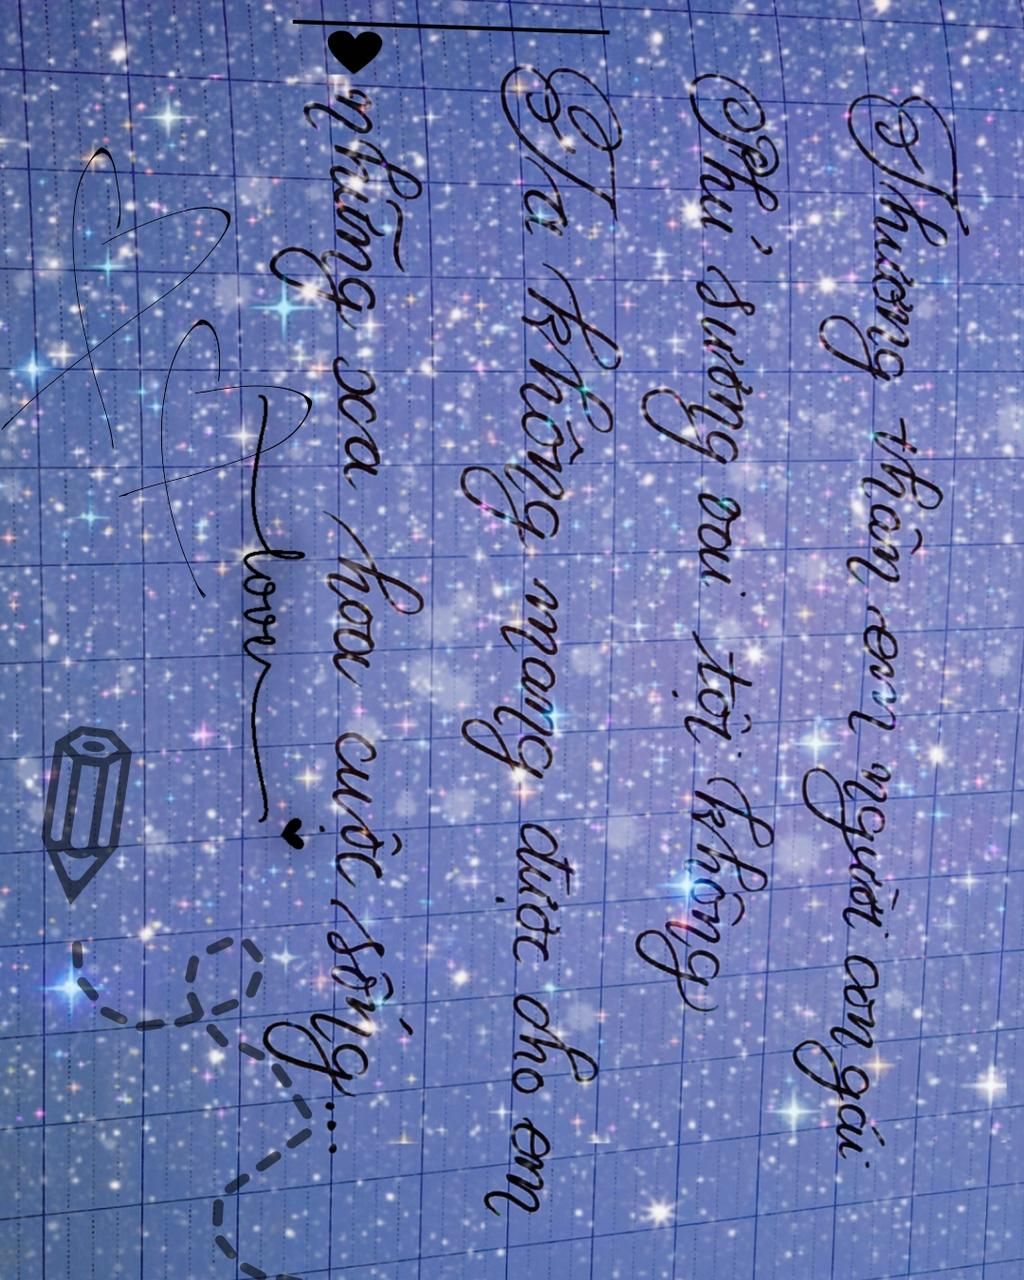 Thương thân em người con gái
Phủ sương vai tội không
Ta không mang được cho em
những xa hoa cuộc sống...
love